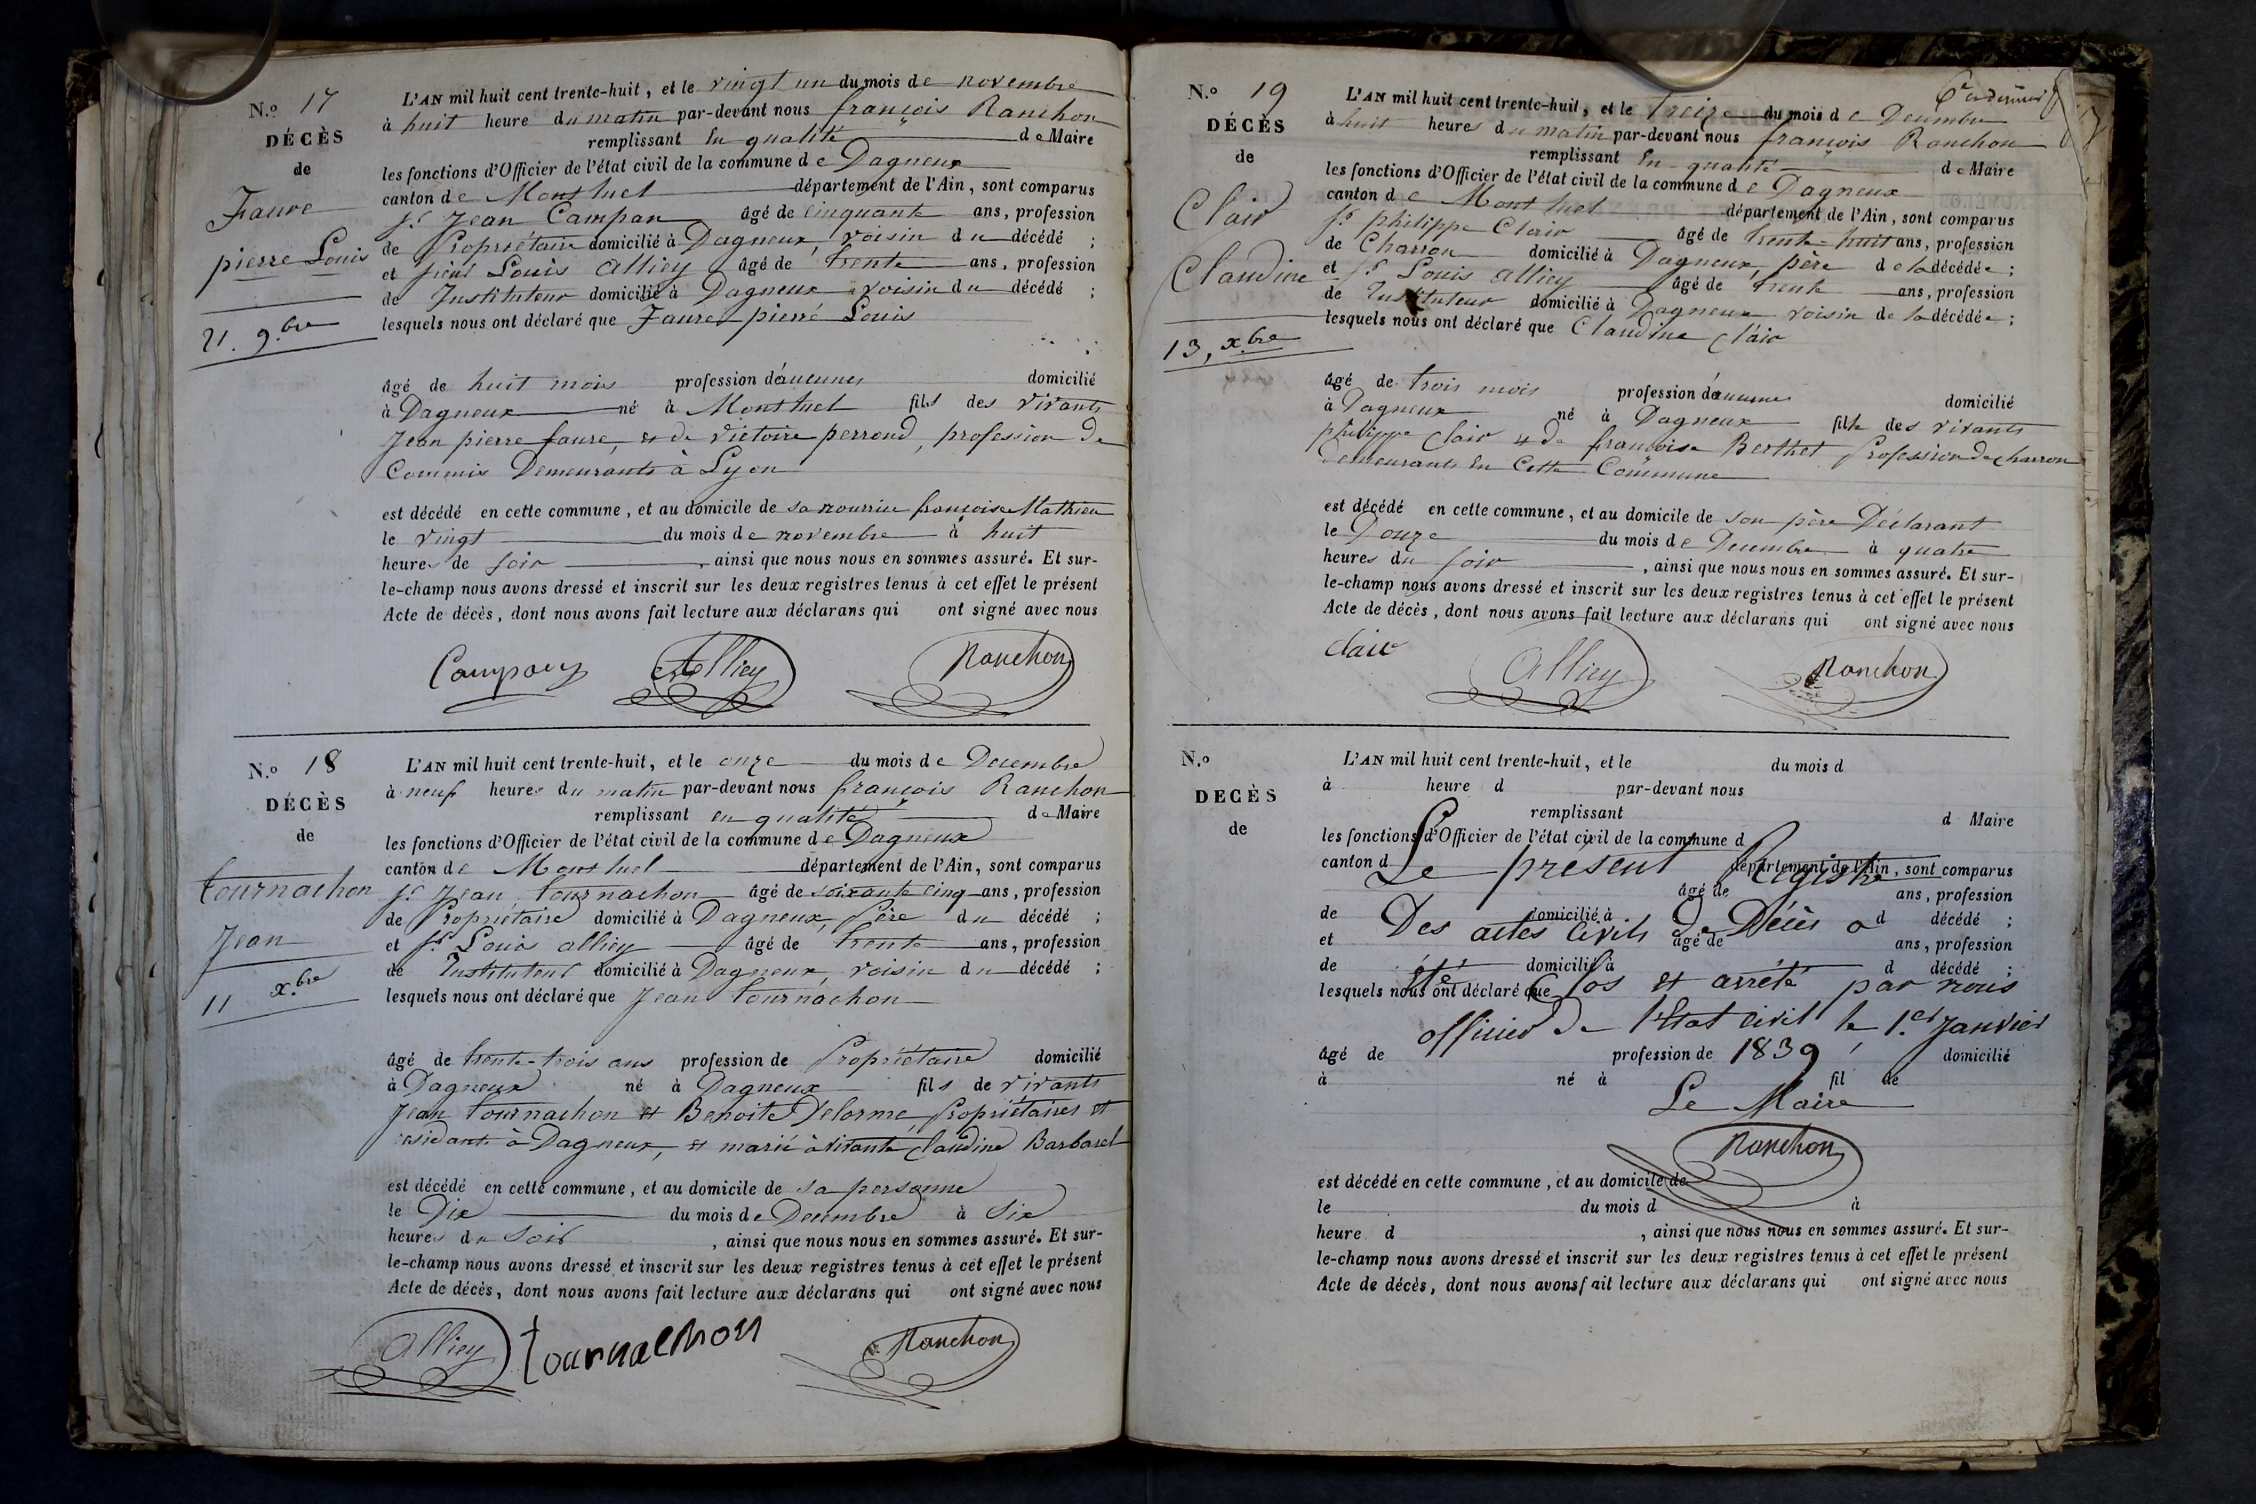 N.o 17
DÉCÈS
de
Faure
pierre Louis
21. 9.bre
L'AN mil huit cent trente-huit, et le vingt un du mois de novembre
à huit heure du matin par-devant nous françois Ranchon
remplissant En qualité de Maire
les fonctions d'Officier de l'état civil de la commune de Dagneux
canton de Montluel département de l'Ain, sont comparus
sr Jean Campan âgé de cinquante ans, profession
de Propriétaire domicilié à Dagneux, voisin du décédé ;
et sieur Louis Alliey âgé de trente ans, profession
de Instituteur domicilié à Dagneux voisin du décédé ;
lesquels nous ont déclaré que Faure pierre Louis
âgé de huit mois profession d'aucunes domicilié
à Dagneux né à Montluel fils des vivants
Jean pierre faure, et de victoire perrond, profession de
Commis Demeurants à Lyon
est décédé en cette commune, et au domicile de sa nourrice françoise Mathieu
le vingt du mois de novembre à huit
heures de soir, ainsi que nous nous en sommes assuré. Et sur-
le-champ nous avons dressé et inscrit sur les deux registres tenus à cet effet le présent
Acte de décès, dont nous avons fait lecture aux déclarans qui ont signé avec nous
Campan Alliey Ranchon
N.o 18
DÉCÈS
de
tournachon
Jean
11 x.bre
L'AN mil huit cent trente-huit, et le onze du mois de Decembre
à neuf heures du matin par-devant nous françois Ranchon
remplissant en qualité de Maire
les fonctions d'Officier de l'état civil de la commune de Dagneux
canton de Montluel département de l'Ain, sont comparus
sr Jean tournachon âgé de soixante cinq ans, profession
de Propriétaire domicilié à Dagneux, Père du décédé ;
et sr Louis alliey âgé de trente ans, profession
de Instituteur domicilié à Dagneux, voisin du décédé ;
lesquels nous ont déclaré que Jean tournachon
âgé de trente-trois ans profession de Propriétaire domicilié
à Dagneux né à Dagneux fils de vivants
Jean tournachon et Benoite Delorme, Propriétaires et
residants à Dagneux, et marié à vivante claudine Barbaret
est décédé en cette commune, et au domicile de sa personne
le Dix du mois de Decembre à Six
heures du Soir, ainsi que nous nous en sommes assuré. Et sur-
le-champ nous avons dressé et inscrit sur les deux registres tenus à cet effet le présent
Acte de décès, dont nous avons fait lecture aux déclarans qui ont signé avec nous
Alliey tournachon Ranchon
6e et dernier
N.o 19
DÉCÈS
de
Clair
Claudine
13, x.bre
L'AN mil huit cent trente-huit, et le treize du mois de Decembre
à huit heures du matin par-devant nous françois Ranchon
remplissant En qualité de Maire
les fonctions d'Officier de l'état civil de la commune de Dagneux
canton de Montluel département de l'Ain, sont comparus
sr philippe Clair âgé de trente-huit ans, profession
de Charron domicilié à Dagneux, père de la décédée ;
et sr Louis alliey âgé de trente ans, profession
de Instituteur domicilié à Dagneux voisin de la décédée ;
lesquels nous ont déclaré que Claudine clair
âgé de trois mois profession d'aucunes domicilié
à Dagneux né à Dagneux fille des vivants
philippe clair & de françoise Berthet Profession de charron
Demeurants En Cette Commune
est décédé en cette commune, et au domicile de son père Déclarant
le Douze du mois de Decembre à quatre
heures du soir, ainsi que nous nous en sommes assuré. Et sur-
le-champ nous avons dressé et inscrit sur les deux registres tenus à cet effet le présent
Acte de décès, dont nous avons fait lecture aux déclarans qui ont signé avec nous
clair Alliey Ranchon
N.o
DECÈS
de
L'AN mil huit cent trente-huit, et le du mois d
à heure d par-devant nous
remplissant d Maire
les fonctions d'Officier de l'état civil de la commune d
canton d département de l'Ain, sont comparus
Le present Registre
âgé de ans, profession
de domicilié à d décédé ;
Des actes Civils De Décès a
et âgé de ans, profession
de domicilié à d décédé ;
été Clos et arrêté par nous
lesquels nous ont déclaré que
officier De l'Etat civil le 1.er Janvier
âgé de profession de domicilié
1839
à né à fil de
Le Maire
Ranchon
est décédé en cette commune, et au domicile de
le du mois d à
heure d , ainsi que nous nous en sommes assuré. Et sur-
le-champ nous avons dressé et inscrit sur les deux registres tenus à cet effet le présent
Acte de décès, dont nous avons fait lecture aux déclarans qui ont signé avec nous